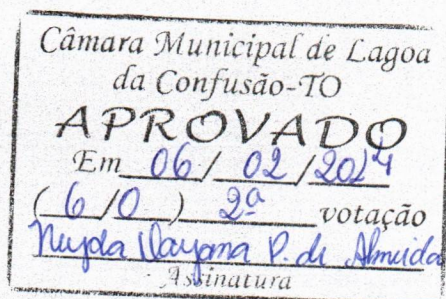 Câmara Municipal de Lagoa
da Confusão-TO
APROVADO
Em 06 / 02 / 2024
( 6 / 0 ) 2ª votação
Dayana P. de Almeida
Assinatura